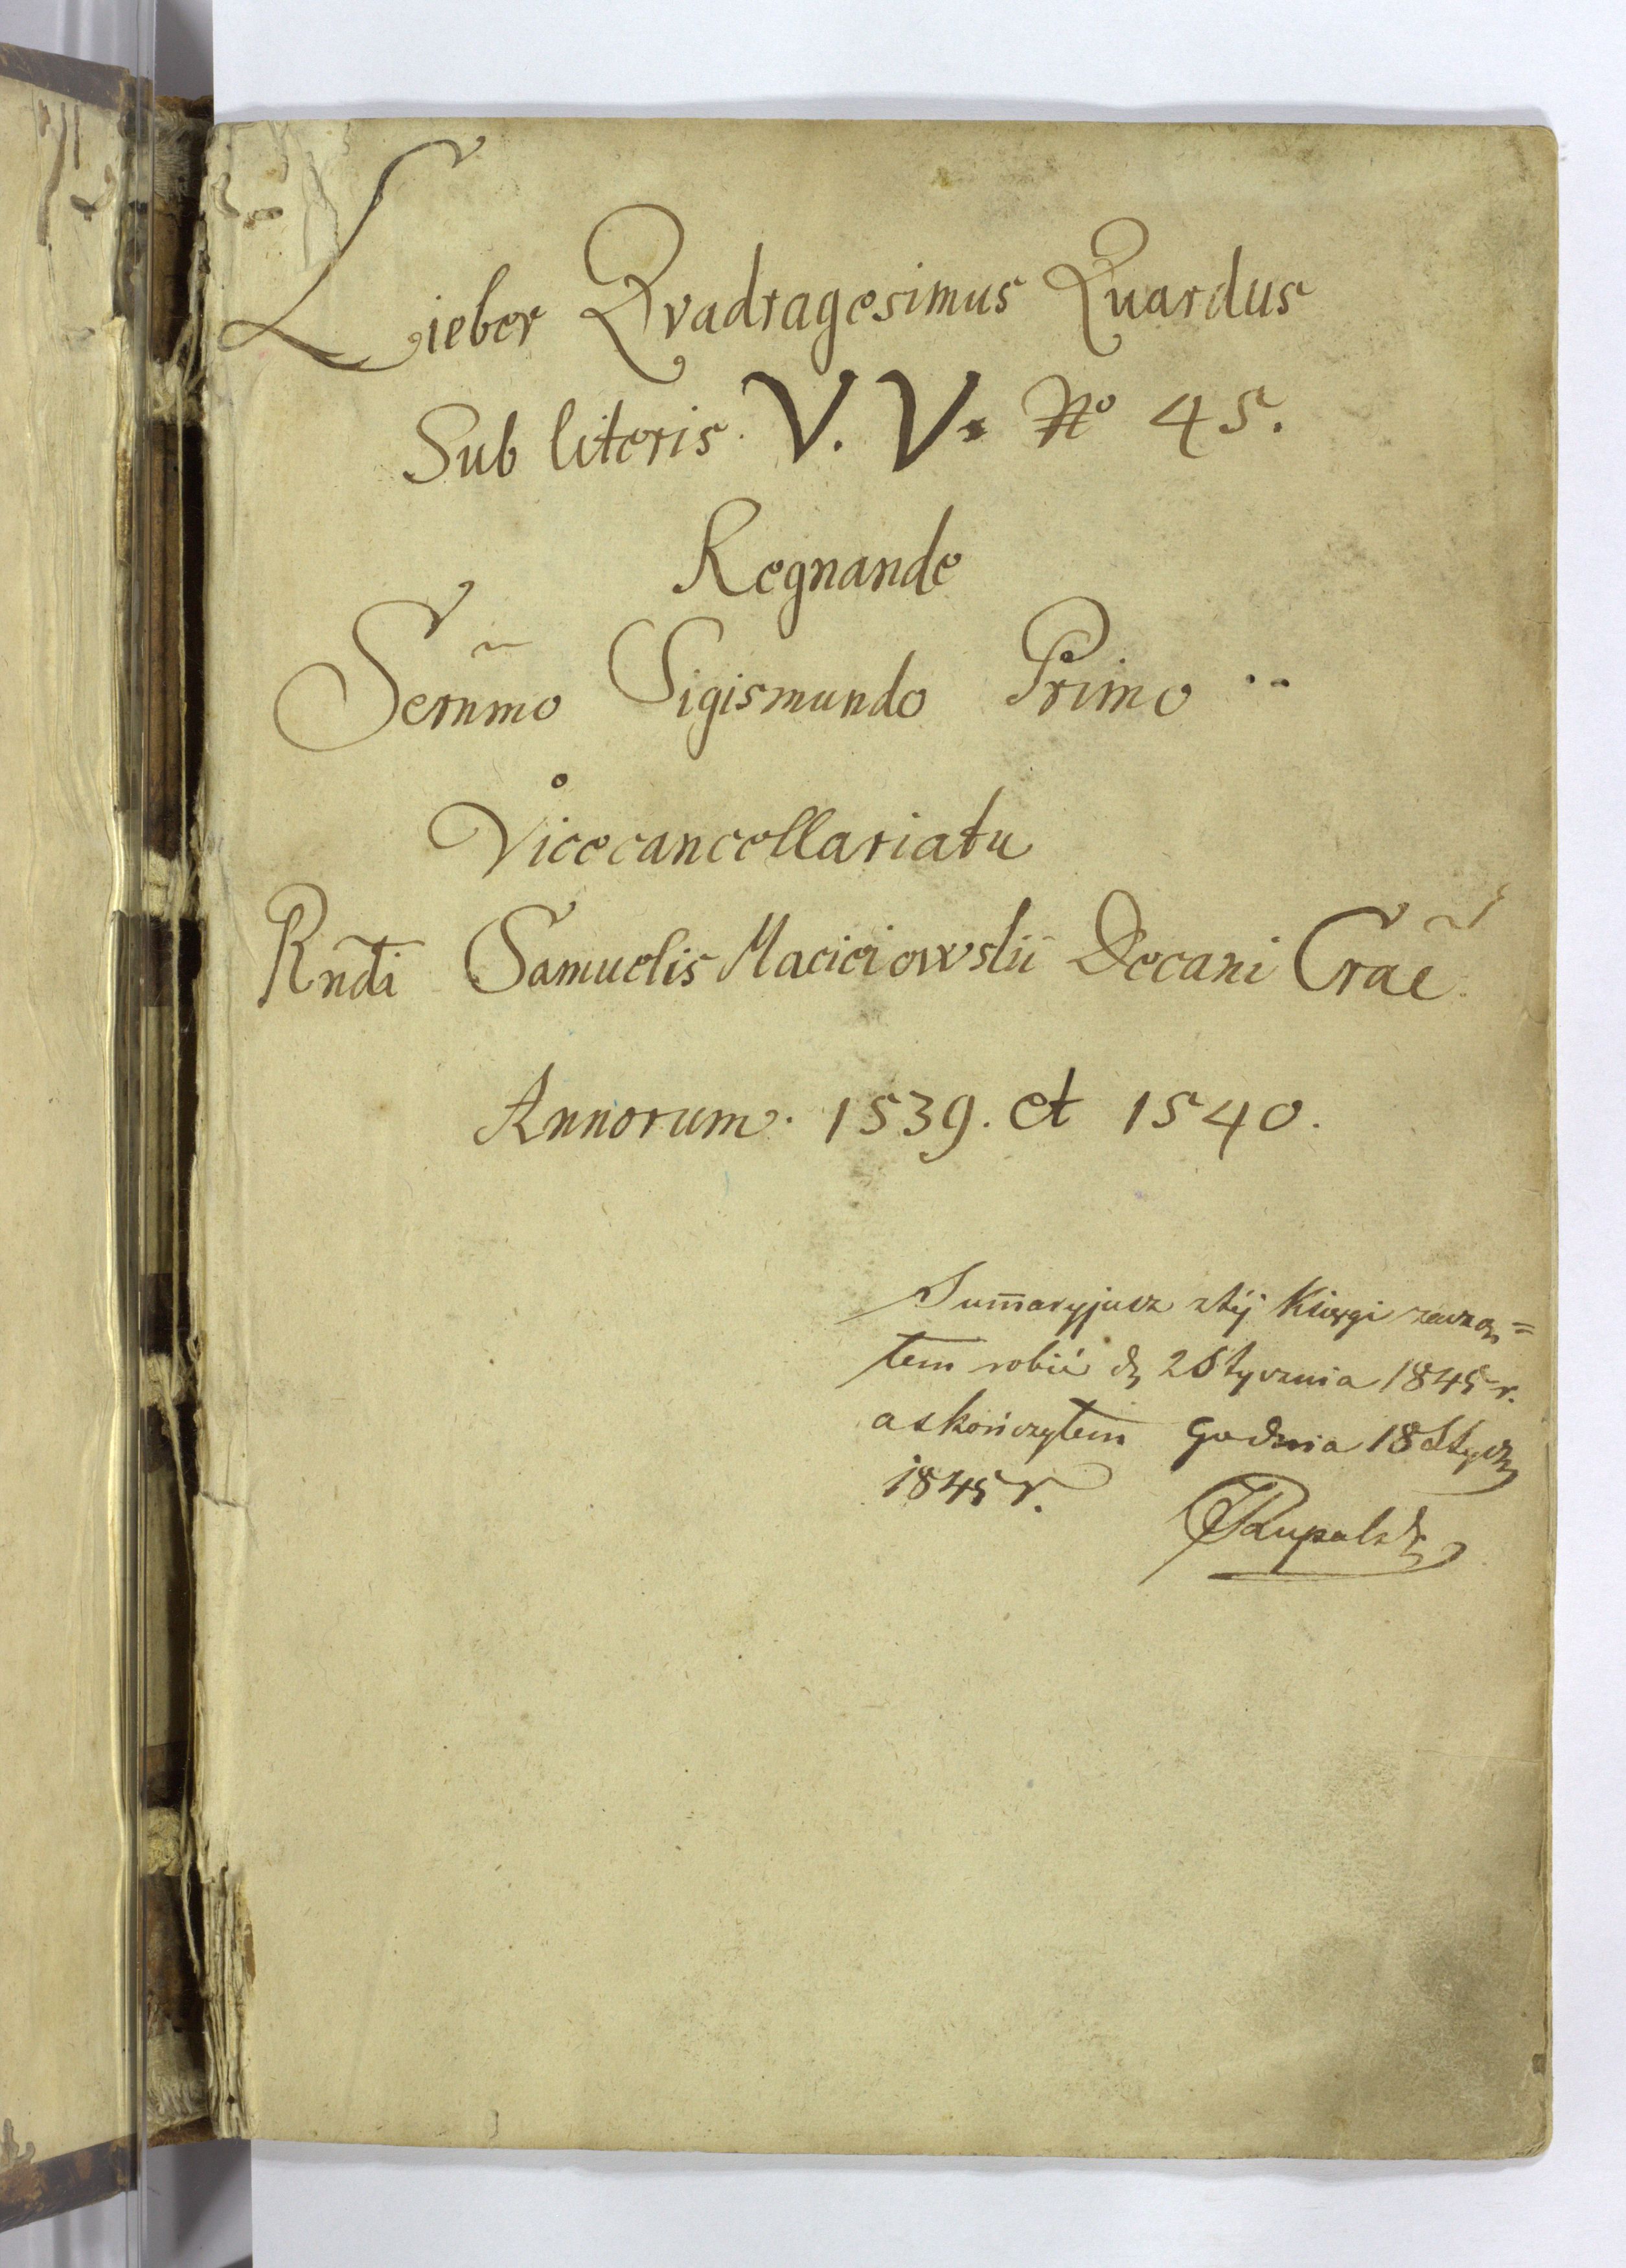 Lieber Qvadragesimus Quardus
Sub literis V. V. No 45.
Regnande
Sernmo Sigismundo Primo
Vicecancellariatu
Rndi Samuelis Macieiowslii Decani Crac
Annorum. 1539. et 1540.
Summaryjusz z téj Księgi zaczą=
łem robić d 2 Stycznia 1845 r.
a skończyłem go dnia 18 Stycz
1845 r.